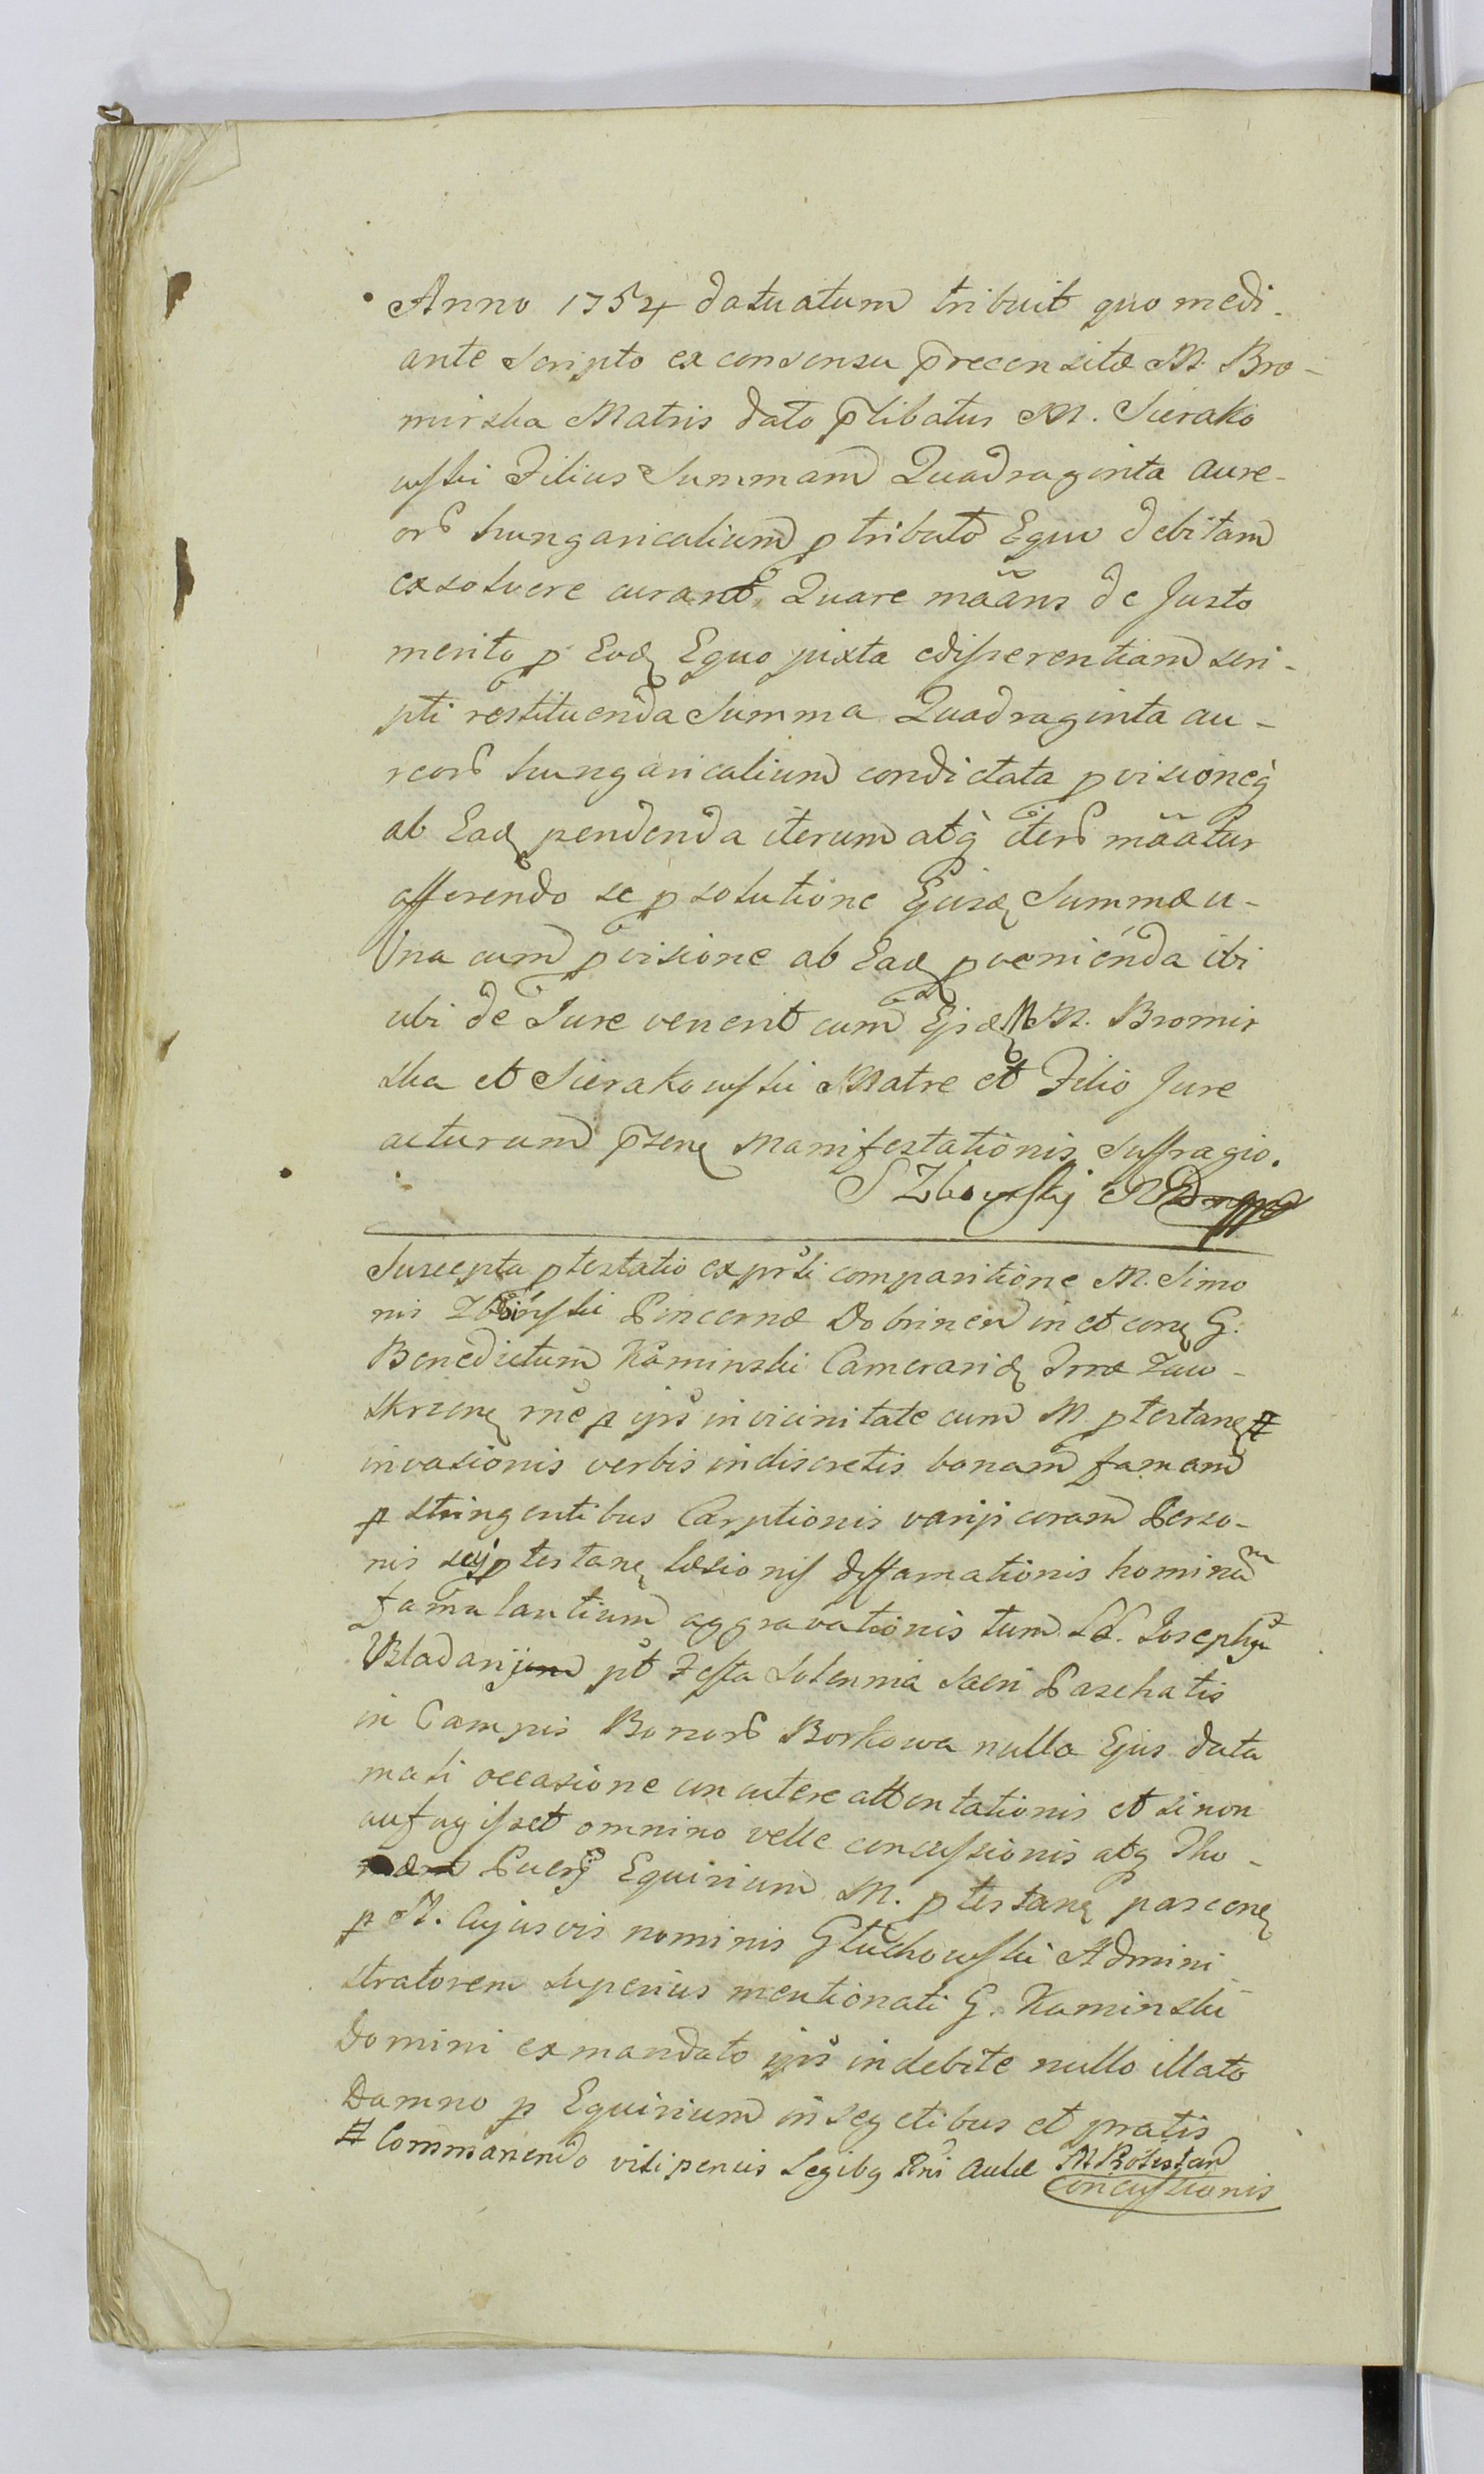 Anno 1754 datuatum tribuit quo medi-
ante Scripto ex consensu p̄recensitæ M. Bro-
mirska Matris dato p̄libatus M. Sierako
wski Filius Summam Quadraginta aure-
or̄ hungaricalium p tributo Equo debitam
exsolvere curant. Quare mããns de Justo
merito p Eodꝫ Equo juxta edisserentiam scri-
pti restituenda Summa Quadraginta au-
reor̄ hungaricalium condictata pvisioneq̀
ab Eadꝫ pendenda iterum atq̀ iter̄ mããtur
offerendo se p solutione Ejusdꝫ Summæ u-
Una cum pvisione ab Eadꝫ pvenienda ibi
ubi de Jure venerit cum Ejsdꝫ M. Bromir
ska et Sierakowski Matre et Filio Jure
acturum p̄senꝫ Manifestationis Suffragio.
S Zbowskj
Suscepta ptestatio ex pr̃ti comparitione M. Simo
nis Zboinski Pincernæ Dobrinen in et conꝫ G.
Benedictum Kaminski Camerariꝫ Trræ Zaw-
skrzenꝫ rñe p ips̃ in vicinitate cum M. ptestanꝫ #
invasionis verbis indiscretis bonam famam
p stringentibus Carptionis varijs coram Perso-
nis ptestanꝫ læsionis diffamationis hominum
famulantium aggravationis tum Ld. Josephu
Wlodarij põt Festa Solennia Sacri Paschatis
in Campis Bonor̄ Borkowa nulla Ejus data
mali occasione concutere attentationis et si non
aufugisset omnino velle concussionis atq Tho-
Pueri Equirium M. ptestanꝫ pascenꝫ
p N. Cujusvis nominis Głuchowski Admini
stratorem superius mentionati G. Kaminski
Domini ex mandato ips̃ indebite nullo illato
Damno p Equirium in segetibus et pratis
# Commanendo vilipensis Legibꝫ
Concussionis